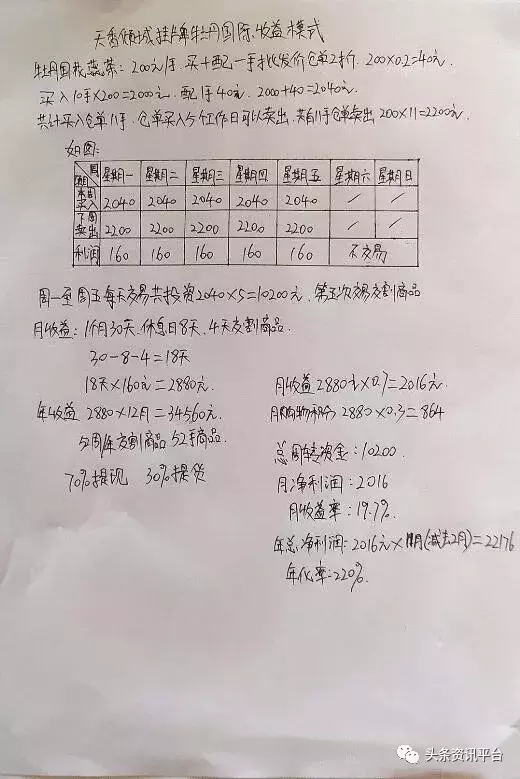 天香倾城挂牌牡丹国际收益模式
牡丹国花蕊茶：200元/手 买十配一手批发价仓单2折 200×0.2=40元.
买入10手×200=2000元. 配1手40元. 2000+40=2040元.
共计买入仓单11手. 仓单买入5个工作日可以卖出. 共有11手仓单卖出 200×11=2200元.
如图:
周 星期一 星期二 星期三 星期四 星期五 星期六 星期日
项目
本周买入 2040 2040 2040 2040 2040 / /
下周卖出 2200 2200 2200 2200 2200 / /
利润 160 160 160 160 160 不交易
周一至周五每天交易共投资2040×5=10200元. 第五次交易交割商品
月收益：1个月30天.休息日8天.4天交割商品.
30-8-4=18天
18天×160元=2880元.
年收益 2880×12月=34560元.
5周年交割商品 52手商品.
70%提现 30%提货
月收益2880元×0.7=2016元.
月购物积分 2880×0.3=864
总周转资金:10200.
月净利润:2016
月收益率:19.7%.
年总净利润:2016元×11月(减去2月)=22176
年化率:220%.
头条资讯平台